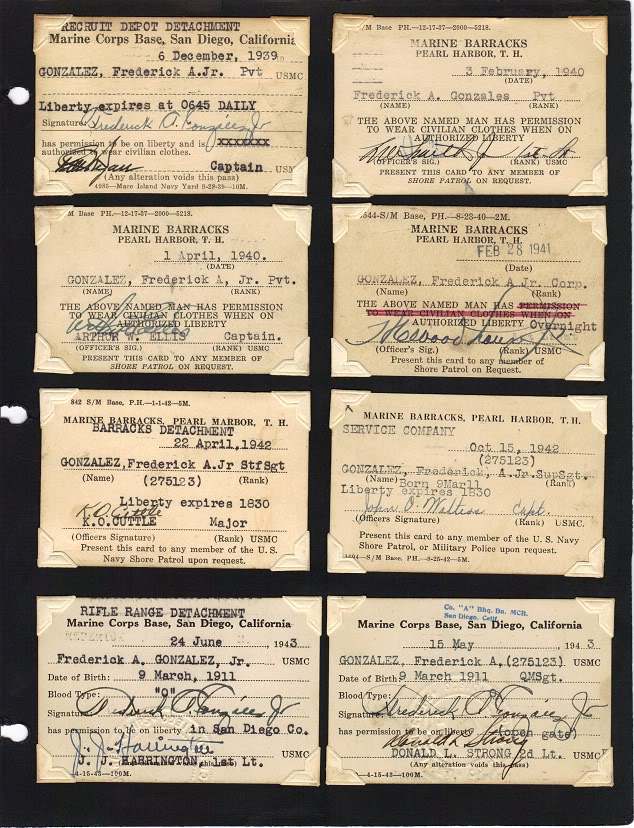 RECRUIT DEPOT DETACHMENT
Marine Corps Base, San Diego, California
6 December, 1939
GONZALEZ, Frederick A.Jr. Pvt USMC
Liberty expires at 0645 DAILY
Signature: Frederick A. Gonzalez Jr
has permission to be on liberty and is xxxxxxx
authorized to wear civilian clothes.
Captain. USM
(Any alteration voids this pass)
4985—Mare Island Navy Yard 9-28-39—10M.
S/M Base PH.—12-17-37—2000—5218.
MARINE BARRACKS
PEARL HARBOR, T. H.
3 February, 1940
(DATE)
Frederick A. Gonzales Pvt
(NAME) (RANK)
THE ABOVE NAMED MAN HAS PERMISSION
TO WEAR CIVILIAN CLOTHES WHEN ON
AUTHORIZED LIBERTY
(OFFICER'S SIG.) (RANK) USMC
PRESENT THIS CARD TO ANY MEMBER OF
SHORE PATROL ON REQUEST.
M Base PH.—12-17-37—2000—5218.
MARINE BARRACKS
PEARL HARBOR, T. H.
1 April, 1940.
(DATE)
GONZALEZ, Frederick A, Jr. Pvt.
(NAME) (RANK)
THE ABOVE NAMED MAN HAS PERMISSION
TO WEAR CIVILIAN CLOTHES WHEN ON
AUTHORIZED LIBERTY
ARTHUR W. ELLIS Captain.
(OFFICER'S SIG.) (RANK) USMC
PRESENT THIS CARD TO ANY MEMBER OF
SHORE PATROL ON REQUEST.
844-S/M Base, PH.—8-23-40—2M.
MARINE BARRACKS
PEARL HARBOR, T. H.
FEB 28 1941
(Date)
GONZALEZ, Frederick A Jr. Corp.
(Name) (Rank)
THE ABOVE NAMED MAN HAS PERMISSION
TO WEAR CIVILIAN CLOTHES WHEN ON
AUTHORIZED LIBERTY Overnight
(Officer's Sig.) (Rank) USMC
Present this card to any member of
Shore Patrol on Request.
842 S/M Base, P.H.—1-1-42—5M.
MARINE BARRACKS, PEARL HARBOR, T. H.
BARRACKS DETACHMENT
22 April,1942
GONZALEZ,Frederick A.Jr StfSgt
(Name) (275123) (Rank)
Liberty expires 1830
K.O. Cuttle
K.O.CUTTLE Major
(Officers Signature) (Rank) USMC
Present this card to any member of the U. S.
Navy Shore Patrol upon request.
MARINE BARRACKS, PEARL HARBOR, T. H.
SERVICE COMPANY
Oct 15, 1942
(275123)
GONZALEZ, Frederick, A.Jr.SupSgt.
(Name) Born 9Mar11 (Rank)
Liberty expires 1830
John O. Walters Capt.
(Officers Signature) (Rank) USMC.
Present this card to any member of the U. S. Navy
Shore Patrol, or Military Police upon request.
S/M Base, PH.—8-25-42—5M.
RIFLE RANGE DETACHMENT
Marine Corps Base, San Diego, California
24 June 1943
Frederick A. GONZALEZ, Jr. USMC
Date of Birth: 9 March, 1911
Blood Type: "O"
Signature Frederick A Gonzalez Jr
has permission to be on liberty in San Diego Co.
J. J. Harrington
J. J. HARRINGTON, 1st Lt. USMC
(Any alteration voids this pass)
4-15-43—100M.
Co. "A" Bhq. Bn. MCB.
San Diego, Calif
Marine Corps Base, San Diego, California
15 May 1943
GONZALEZ, Frederick A,(275123) USMC
Date of Birth: 9 March 1911 QMSgt.
Blood Type:
Signature Frederick A Gonzalez Jr
has permission to be on liberty (open gate)
Donald L Strong
DONALD L. STRONG 2d Lt. USMC
(Any alteration voids this pass)
—4-15-43—100M.